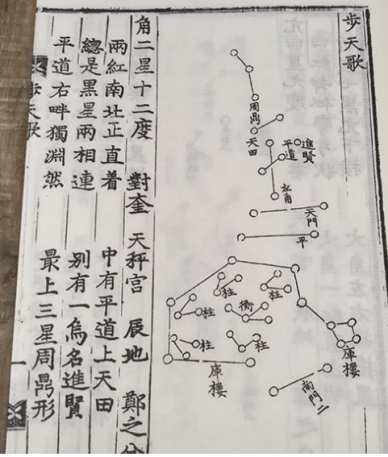 步天歌
周鼎
天田
平道
進賢
左角
天門
平
柱
柱
柱
柱
柱
衡
庫樓
庫樓
南門二
角二星十二度 對奎 天秤宮 辰地 鄭之分
兩紅南北正直着 中有平道上天田
總是黑星兩相連 別有一烏名進賢
平道右畔獨淵然 最上三星周鼎形
步天歌
一